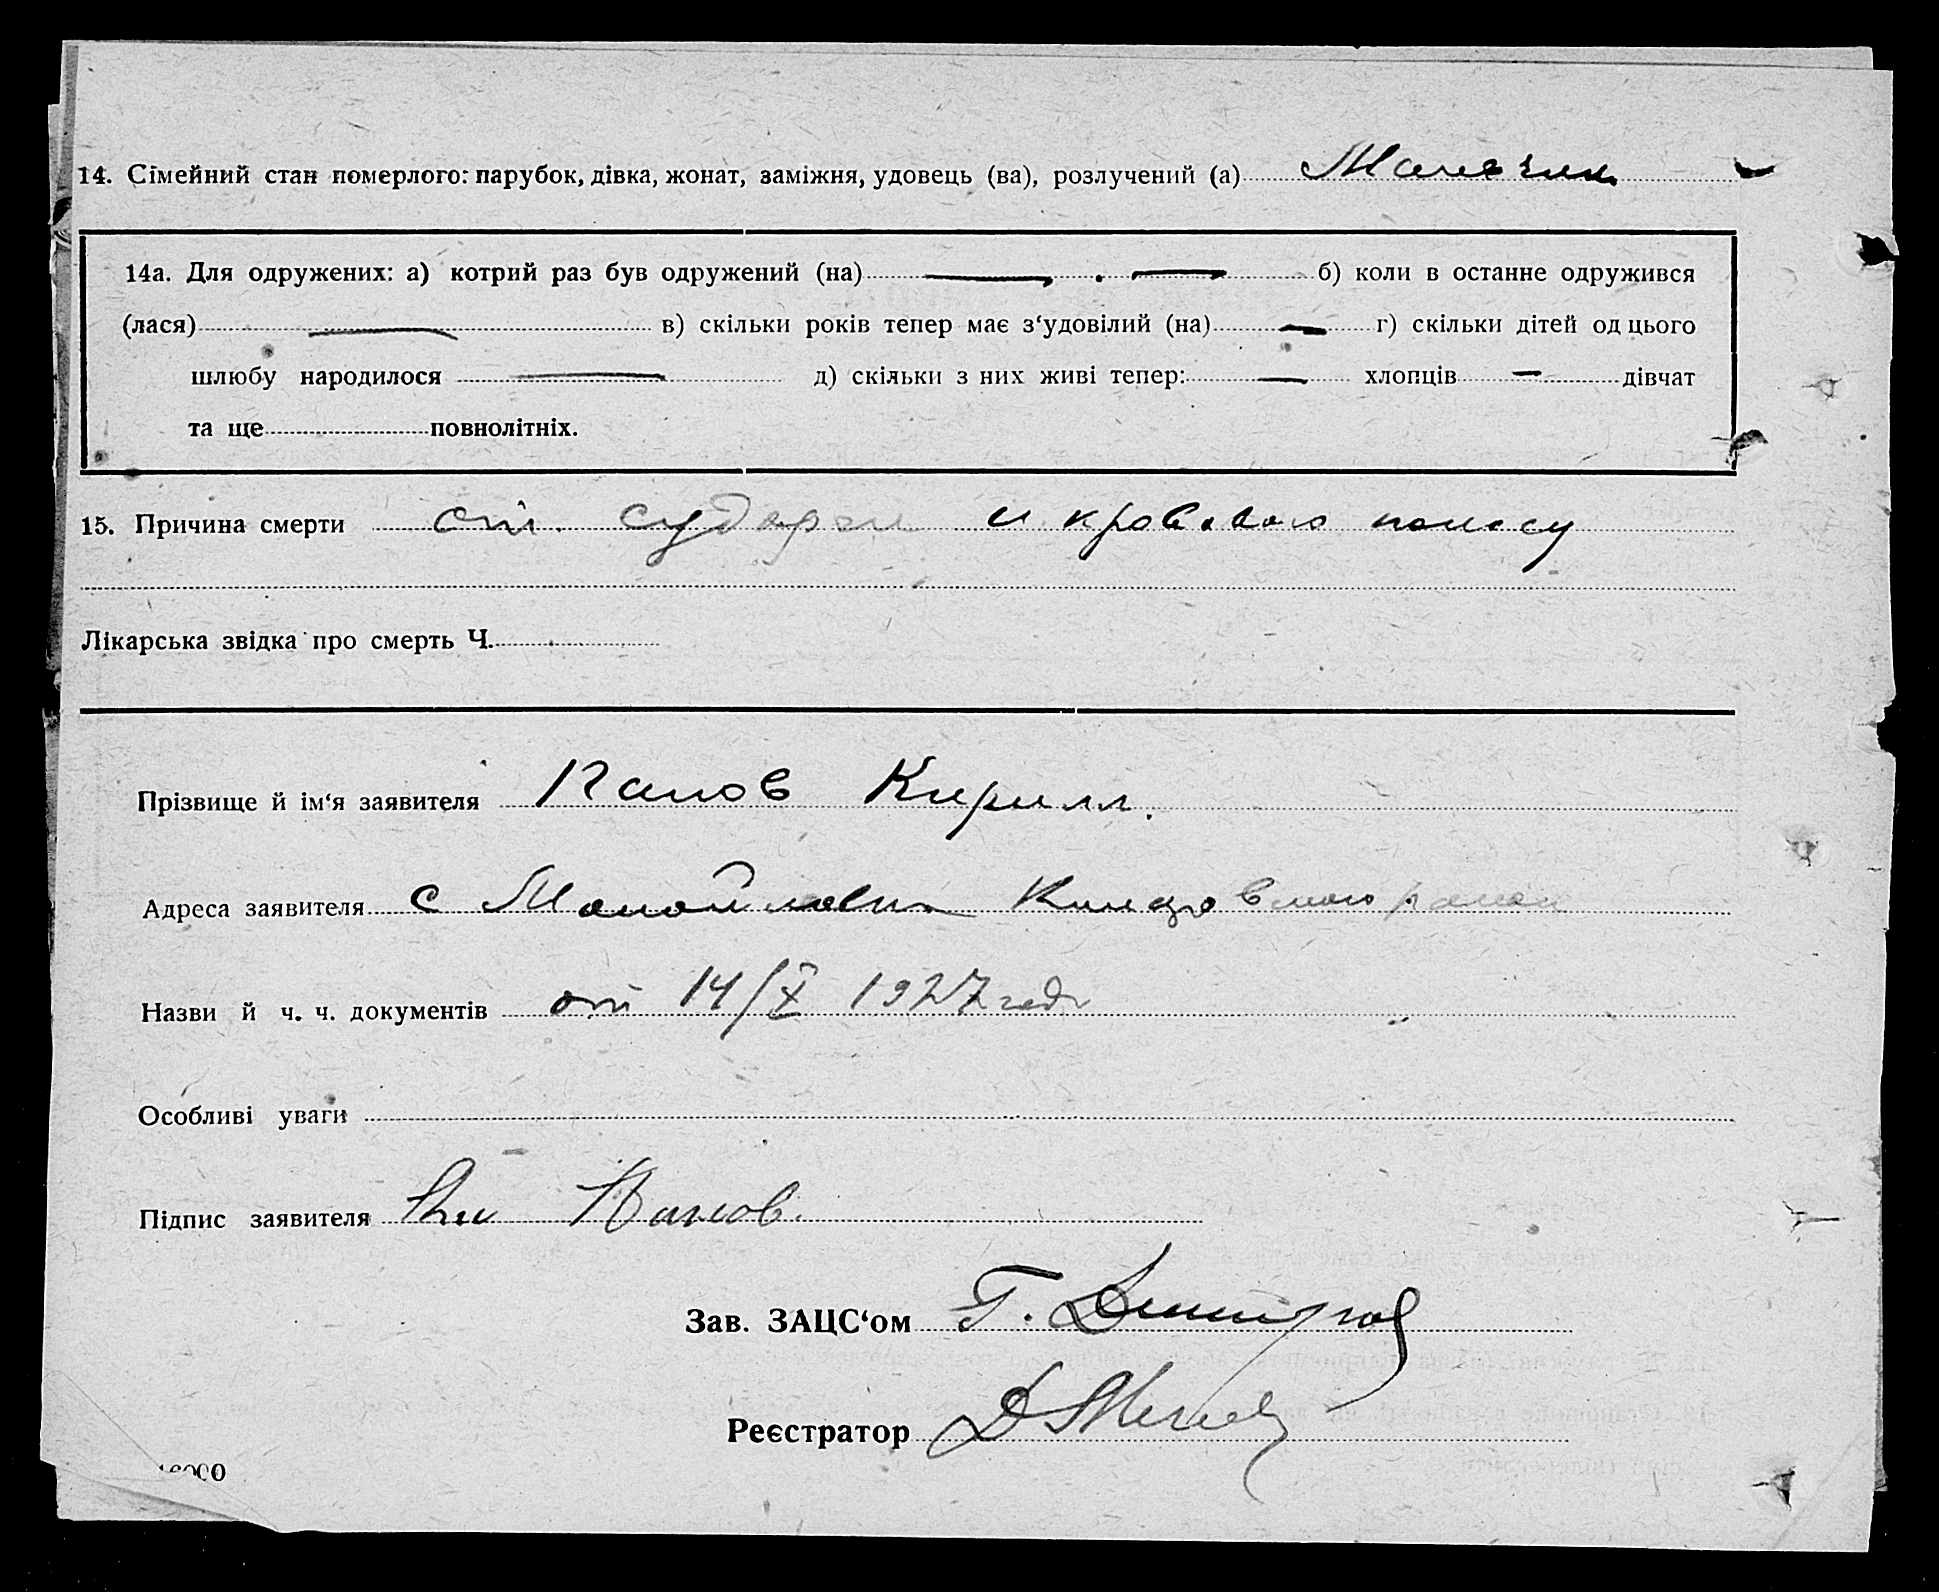 14. Сімейний стан померлого: парубок, дівка, жонат, заміжня, удовець (ва), розлучений (а)
14а. Для одружених: а) котрий раз був одружений (на) — . — б) коли в останне одружився
(лася) — в) скільки років тепер має з‘удовілий (на) — г) скільки дітей од цього
шлюбу народилося — д) скільки з них живі тепер: — хлопців — дівчат
та ще повнолітніх.
15. Причина смерти от. судорги и кровавого поносу
Лікарська звідка про смерть Ч.
Прізвище й ім‘я заявителя Панов Кирилл.
Адреса заявителя с Манойловки
Назви й ч. ч. документів от 14/X 1927 года
Особливі уваги
Підпис заявителя Панов.
Зав. ЗАЦС‘ом Г. Димитров
Реєстратор